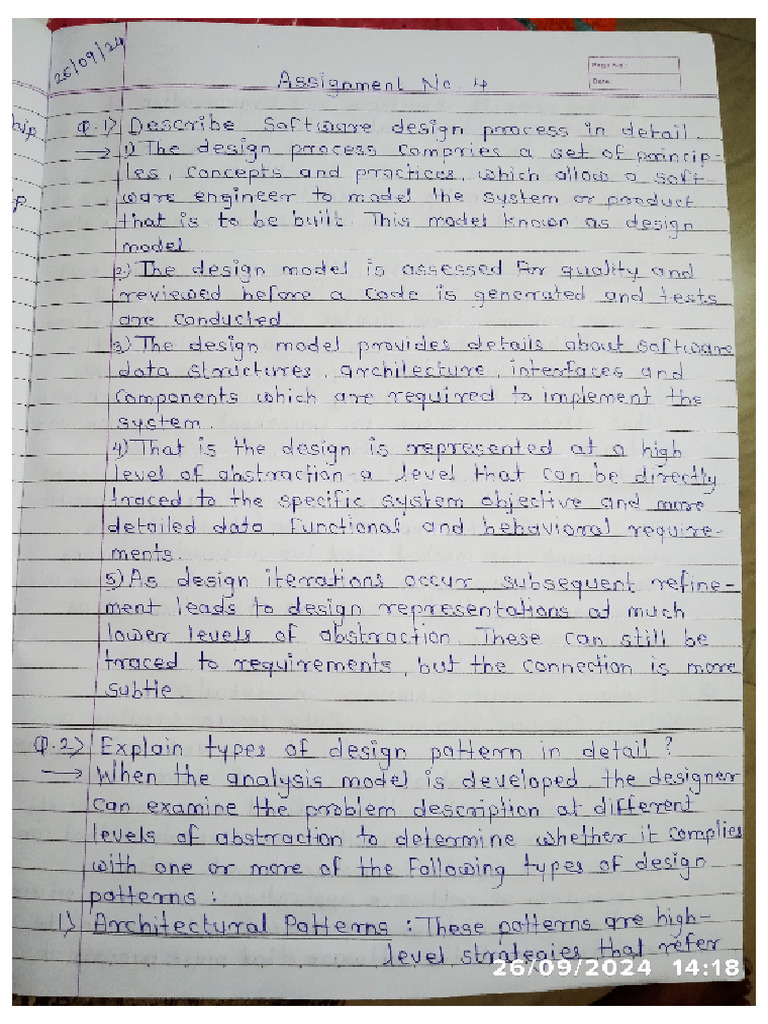 25/09/24
Page No.:
Date:
Assignment No. 4
Q.1) Describe software design process in detail.
→ 1) The design process compries a set of princip-
les, concepts and practices, which allow a soft
ware engineer to model the system or product
that is to be built. This model known as design
model
2) The design model is assessed for quality and
reviewed before a code is generated and tests
are conducted
3) The design model provides details about software
data structures, architecture, interfaces and
components which are required to implement the
system.
4) That is the design is represented at a high
level of abstraction a level that can be directly
traced to the specific system objective and more
detailed data, functional and behavioral require-
ments.
5) As design iterations occur, subsequent refine-
ment leads to design representations at much
lower levels of abstraction. These can still be
traced to requirements, but the connection is more
subtle.
Q.2) Explain types of design pattern in detail ?
→ When the analysis model is developed, the designer
can examine the problem description at different
levels of abstraction to determine whether it complies
with one or more of the following types of design
patterns :
1) Architectural Patterns : These patterns are high-
level strategies that refer
26/09/2024 14:18